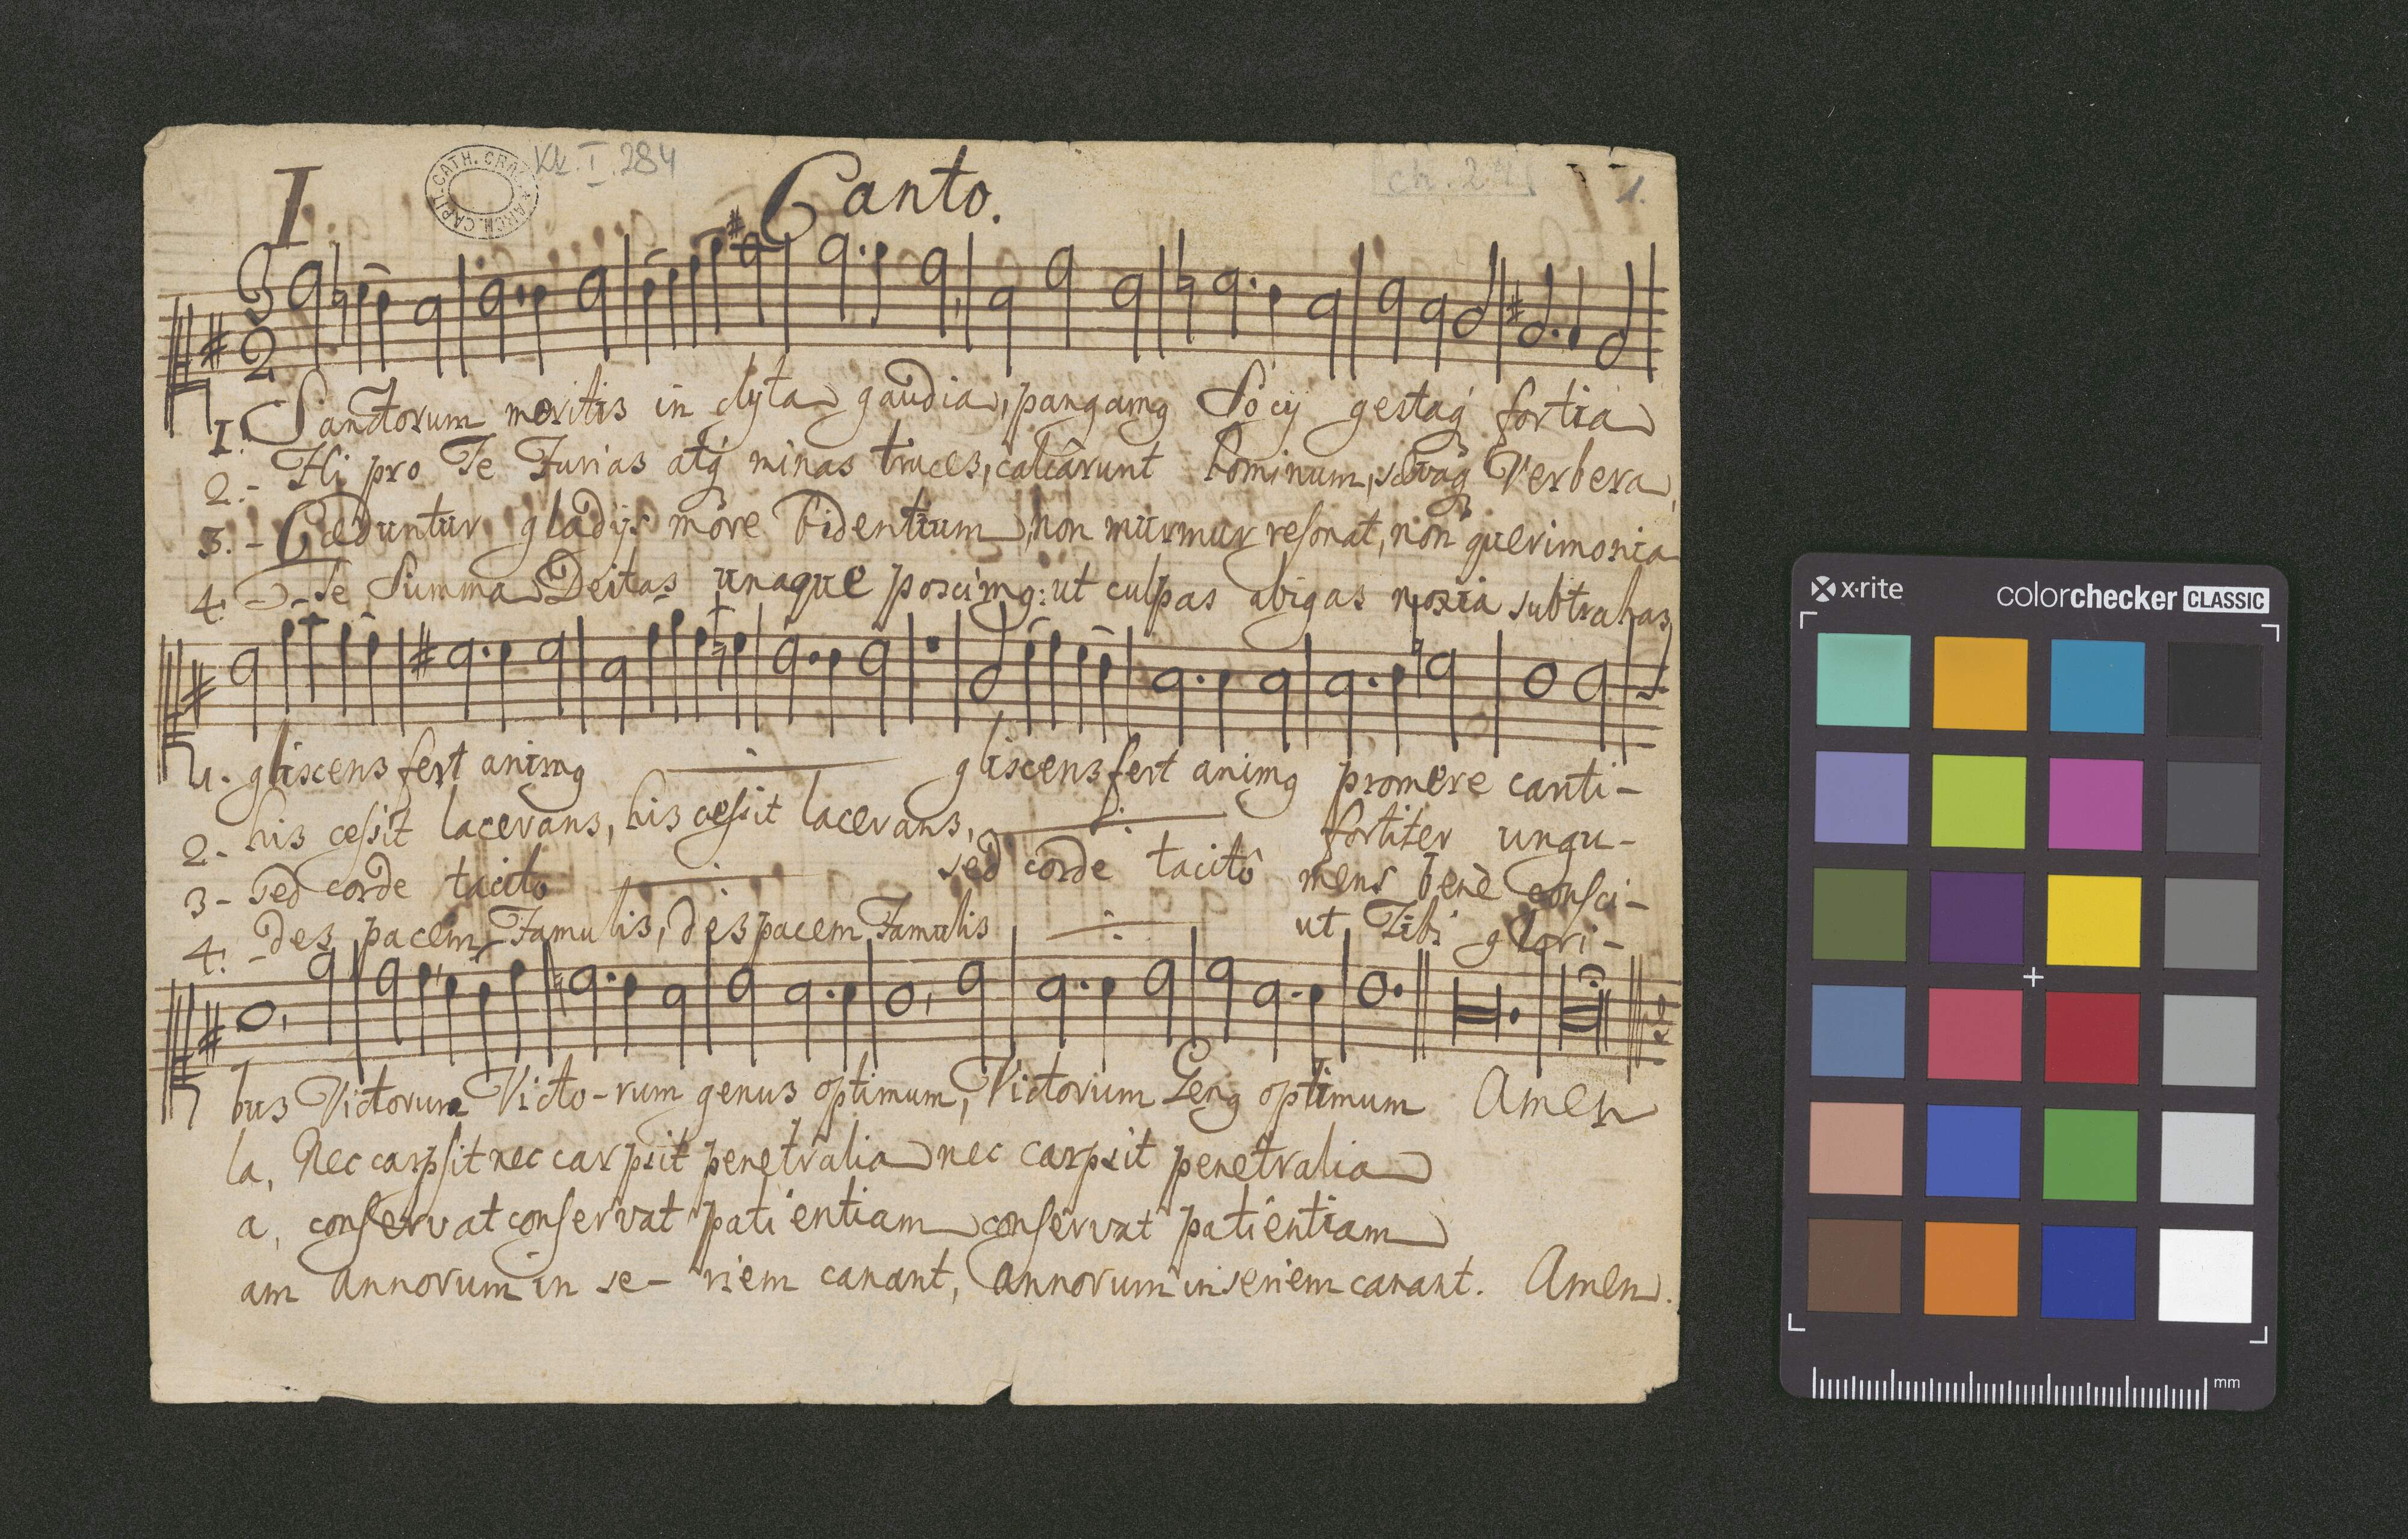 I
CAPIT. CATH. CRAC. ARCH.
Kk. I. 284
Canto.
ch. 2
1.
3
2
1. Sanctorum meritis in clyta gaudia, pangamg Socij gestaq́ fortia
2.- Hi pro Te Furias atq́ minas truces, calcârunt hominum, sævaq́ Verbera,
3.- Cæduntur gladijs môre bidentium, non murmur resonat, non querimonia
4. Te Summa Deitas unaque poscimg: ut culpas abigas noxia subtrahas
1. gliscens fert animg gliscens fert animg promere canti-
2- his cessit lacerans, his cessit lacerans, fortiter ungu-
3- sed corde tacito sed corde tacitô mens benè consci-
4. des pacem Famulis, des pacem Famulis ut Tibi glori-
bus Victorum Victo-rum genus optimum, Victorum Geng optimum Amen
la, Nec carpsit nec carpsit penetralia nec carpsit penetralia
a, conservat conservat patientiam conservat patientiam
am annorum in se- riem canant, annorum in seriem canant. Amen.
x·rite
colorchecker CLASSIC
mm